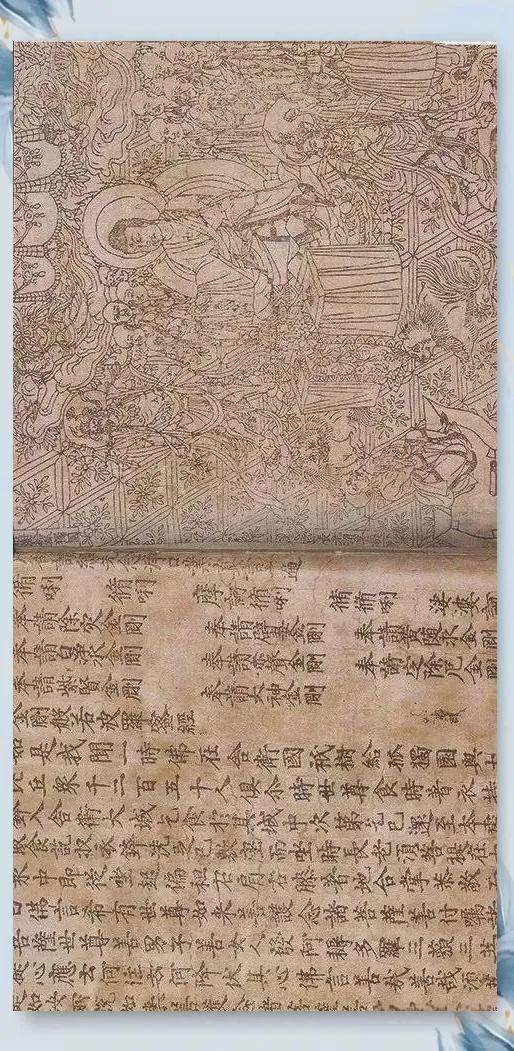 脩唎 脩唎 摩訶脩唎 脩脩唎 娑婆訶
奉請除灾金剛 奉請辟毒金剛 奉請黄随求金剛
奉請白淨水金剛 奉請赤聲金剛 奉請定除厄金剛
奉請紫賢金剛 奉請大神金剛
金剛般若波羅蜜經
如是我聞一時佛在舍衛國祇樹給孤獨園與大
比丘衆千二百五十人俱尒時世尊食時着衣持
鉢入舍衛大城乞食於其城中次第乞已還至本處
飯食訖収衣鉢洗足已敷座而坐時長老湏菩提在大
衆中即從坐起偏袒右肩右膝着地合掌恭敬而
白佛言希有世尊如来善護念諸菩薩善付囑諸
菩薩世尊善男子善女人發阿耨多羅三藐三菩
提心應云何住云何降伏其心佛言善哉善哉湏菩